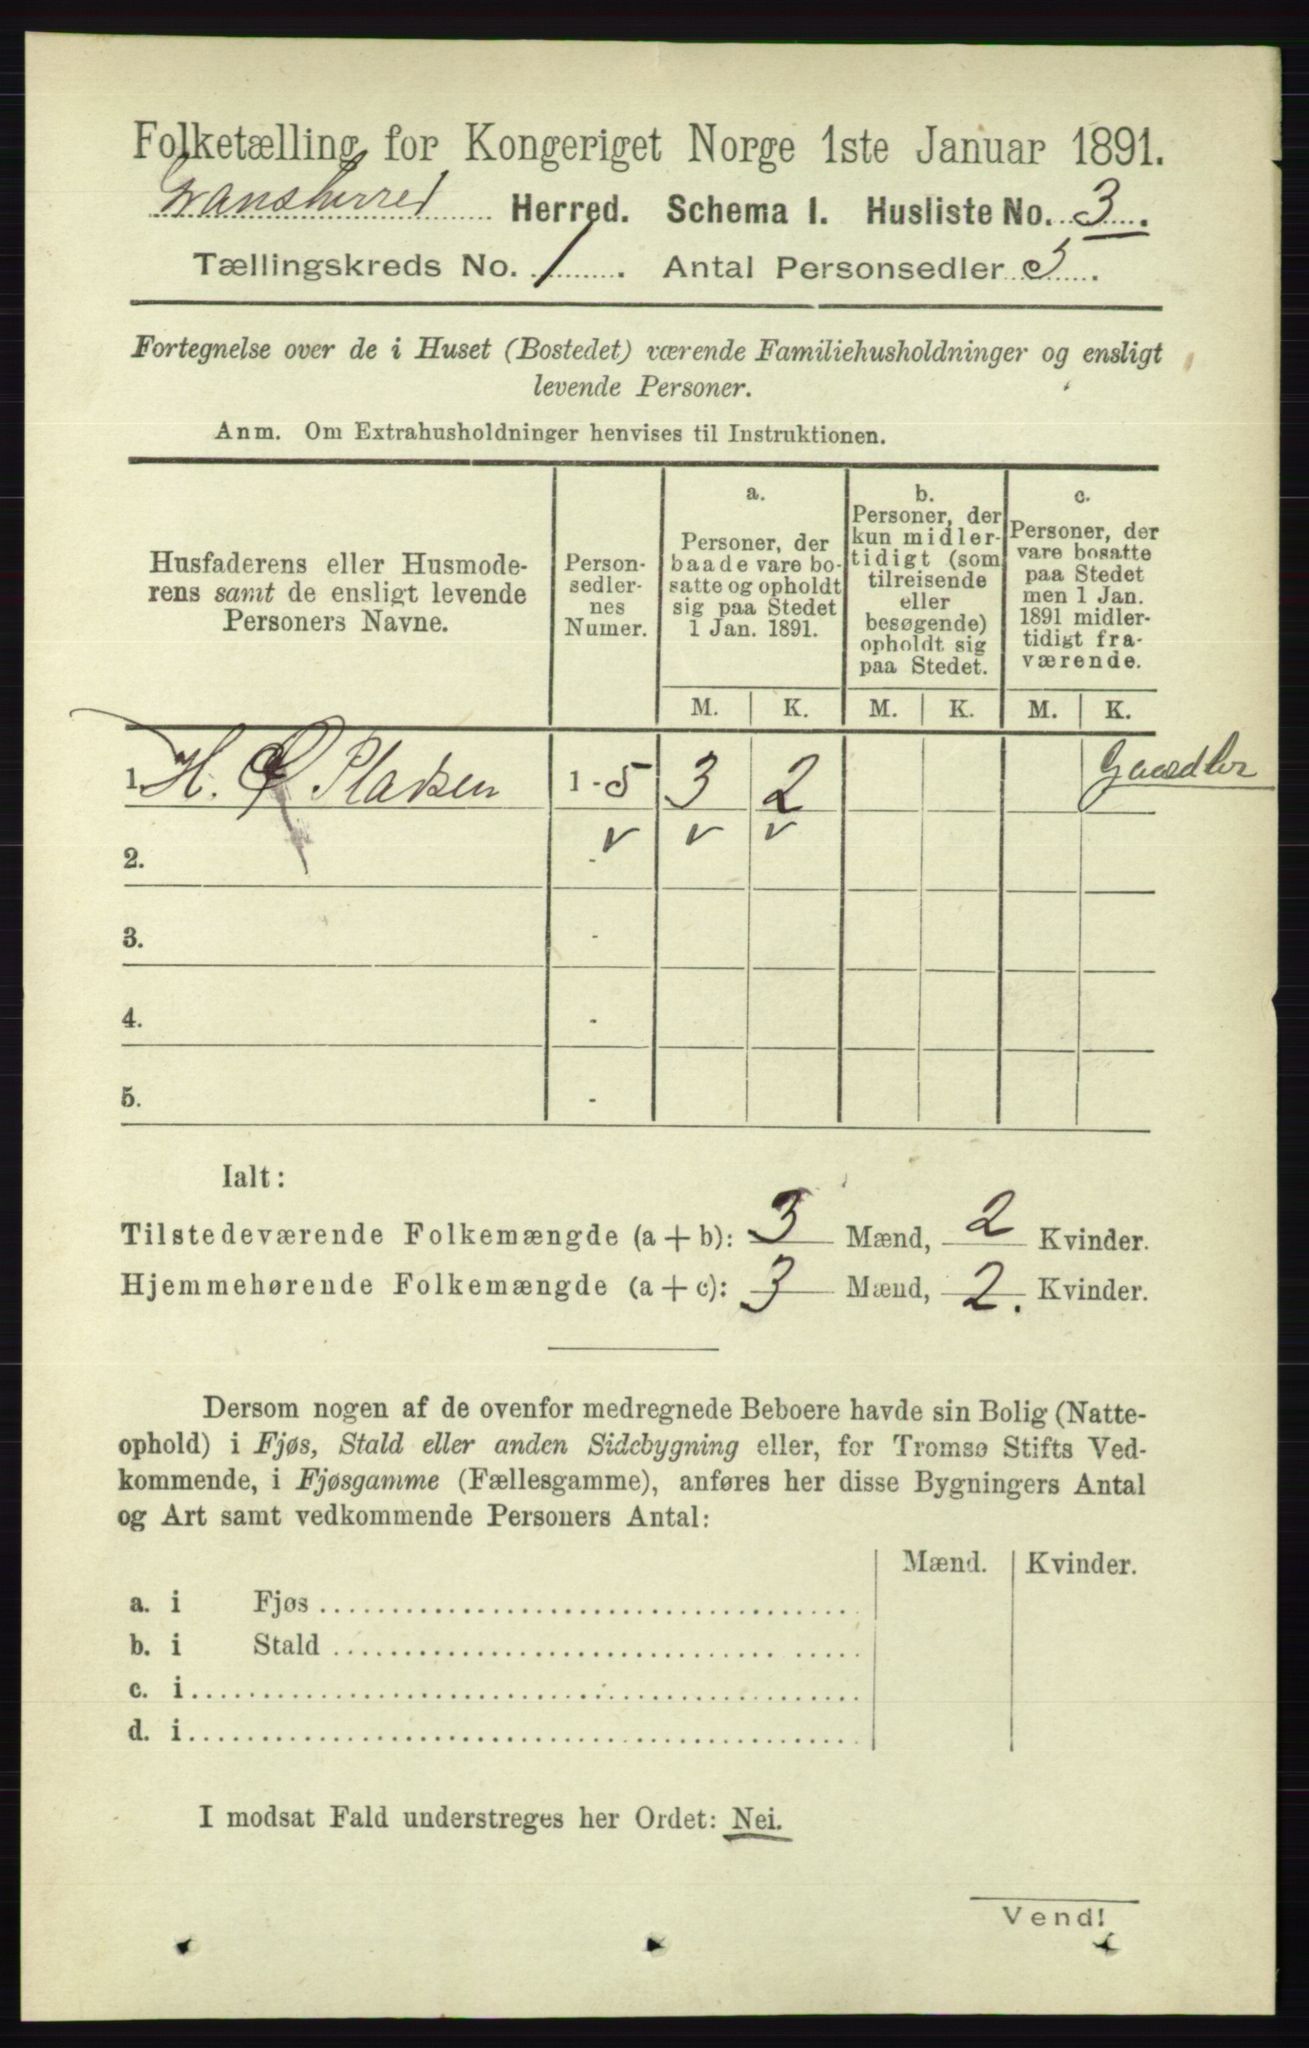 Folketælling for Kongeriget Norge 1ste Januar 1891.
Gransherred Herred. Schema I. Husliste No. 3.
Tællingskreds No. 1. Antal Personsedler 5.
Fortegnelse over de i Huset (Bostedet) værende Familiehusholdninger og ensligt
levende Personer.
Anm. Om Extrahusholdninger henvises til Instruktionen.
Husfaderens eller Husmode-
rens samt de ensligt levende
Personers Navne.
Person-
sedler-
nes
Numer.
a.
Personer, der
baade vare bo-
satte og opholdt
sig paa Stedet
1 Jan. 1891.
b.
Personer, der
kun midler-
tidigt (som
tilreisende
eller
besøgende)
opholdt sig
paa Stedet.
c.
Personer, der
vare bosatte
paa Stedet
men 1 Jan.
1891 midler-
tidigt fra-
værende.
M. K. M. K. M. K.
1. H. Pladsen 1-5 3 2
2. - v v v
3. -
4. -
5. -
Ialt:
Tilstedeværende Folkemængde (a+b): 3 Mænd, 2 Kvinder.
Hjemmehørende Folkemængde (a+c): 3 Mænd, 2. Kvinder.
Dersom nogen af de ovenfor medregnede Beboere havde sin Bolig (Natte-
ophold) i Fjøs, Stald eller anden Sidebygning eller, for Tromsø Stifts Ved-
kommende, i Fjøsgamme (Fællesgamme), anføres her disse Bygningers Antal
og Art samt vedkommende Personers Antal:
Mænd. Kvinder.
a. i Fjøs
b. i Stald
c. i
d. i
I modsat Fald understreges her Ordet: Nei.
Vend!